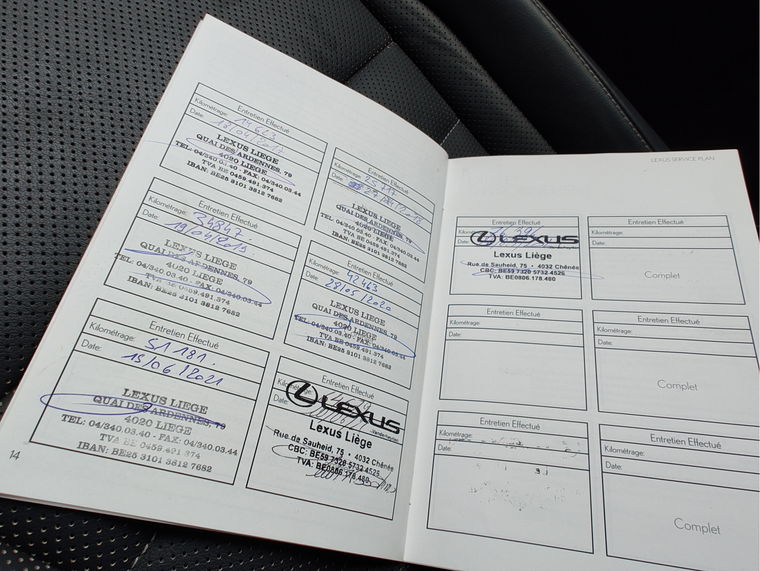 Entretien Effectué
Kilométrage: 14 663
Date: 18/04/2017
LEXUS LIEGE
QUAI DES ARDENNES, 79
4020 LIEGE
TEL: 04/340.03.40 - FAX: 04/340.03.44
TVA BE 0459.491.374
IBAN: BE25 3101 3812 7682
Entretien Effectué
Kilométrage:
Date:
LEXUS LIEGE
QUAI DES ARDENNES, 79
4020 LIEGE
TEL: 04/340.03.40 - FAX: 04/340.03.44
TVA BE 0459.491.374
IBAN: BE25 3101 3812 7682
Entretien Effectué
Kilométrage: 34847
Date: 19/04/2019.
LEXUS LIEGE
QUAI DES ARDENNES, 79
4020 LIEGE
TEL: 04/340.03.40 - FAX: 04/340.03.44
TVA BE 0459.491.374
IBAN: BE25 3101 3812 7682
Entretien Effectué
Kilométrage: 42463
Date: 28/05/2020
LEXUS LIEGE
QUAI DES ARDENNES, 79
4020 LIEGE
TEL: 04/340.03.40 - FAX: 04/340.03.44
TVA BE 0459.491.374
IBAN: BE25 3101 3812 7682
Entretien Effectué
Kilométrage: 51 181.
Date: 15/06/2021
LEXUS LIEGE
QUAI DES ARDENNES, 79
4020 LIEGE
TEL: 04/340.03.40 - FAX: 04/340.03.44
TVA BE 0459.491.374
IBAN: BE25 3101 3812 7682
Entretien Effectué
Kilométrage:
Date:
LEXUS
Lexus Liège
Rue de Sauheid, 75 • 4032 Chênée
CBC: BE59 7320 5732 4526
TVA: BE0806.178.480
14
LEXUS SERVICE PLAN
Entretien Effectué
Kilométrage:
Date:
LEXUS
Lexus Liège
Rue de Sauheid, 75 • 4032 Chênée
CBC: BE59 7320 5732 4526
TVA: BE0806.178.480
Entretien Effectué
Kilométrage:
Date:
Complet
Entretien Effectué
Kilométrage:
Date:
Entretien Effectué
Kilométrage:
Date:
Complet
Entretien Effectué
Kilométrage:
Date:
Entretien Effectué
Kilométrage:
Date:
Complet